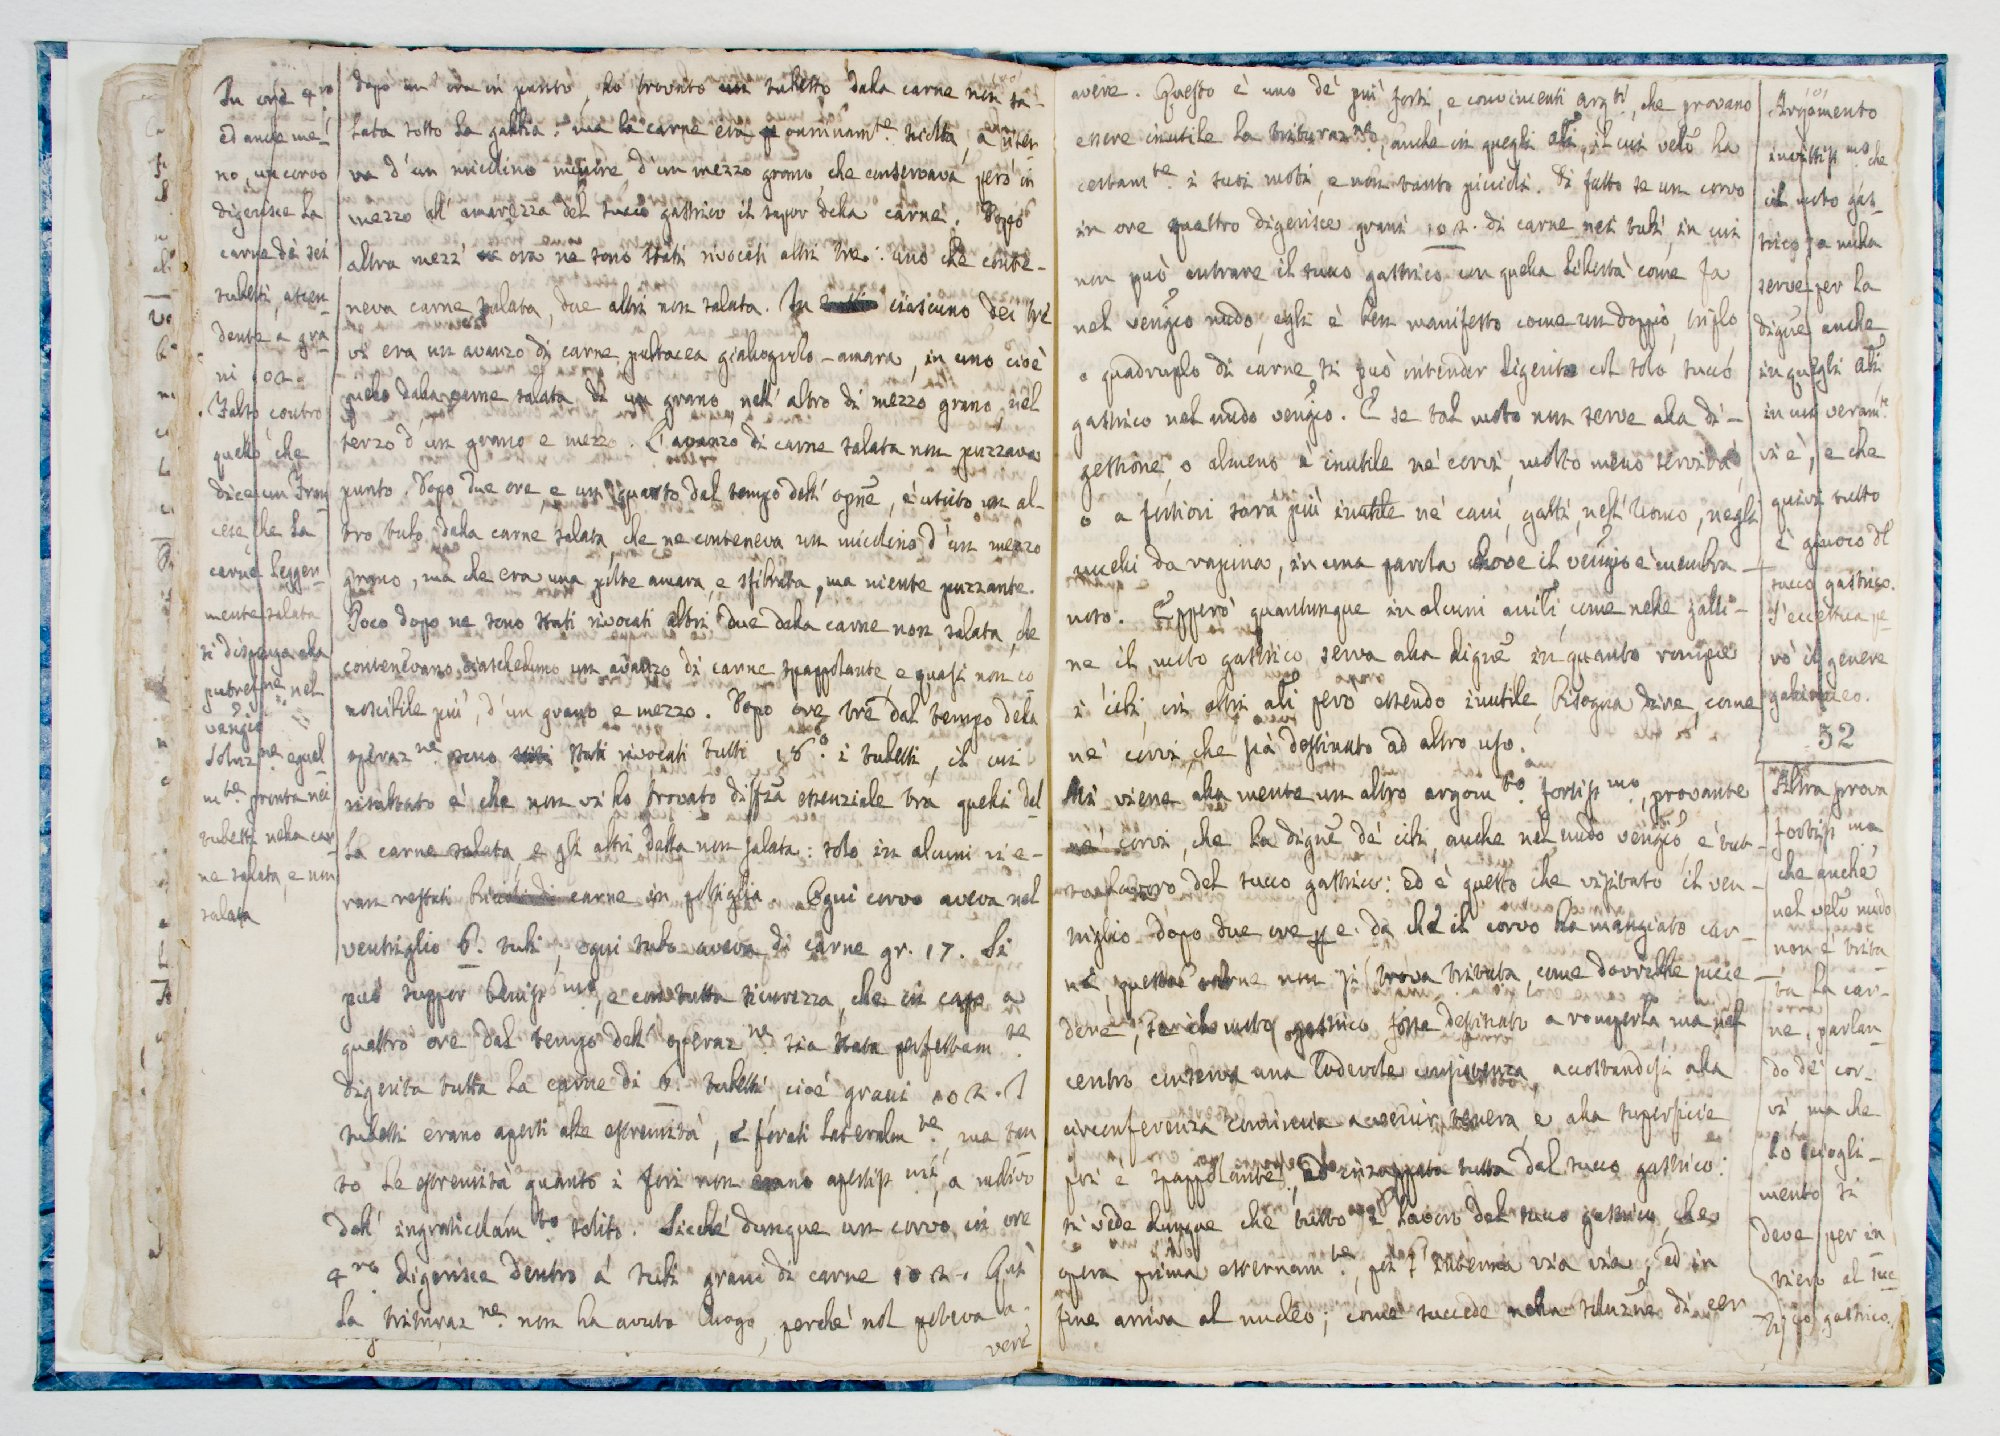 In ore 4.ro
ed anche me-
no, un corvo
digerisce la
carne di sei
tubetti, ascen-
dente a gra-
ni 102.
Falso, contro
quello che
dice un Fran-
cese, che la
carne legger-
mente salata
si disponga alla
putref.ne nel
vengio
Soluz.ne egual
m.te pronta nei
tubetti nella car-
ne salata, e non
salata
dopo un' ora in punto, ho trovato un tubetto dalla carne non sa-
lata sotto la gabbia: ma la carne era onninam.te sciolta, a riser-
va d'un miccolino minore d'un mezzo grano, che conservava però in
mezzo all' amarezza del succo gastrico il sapor della carne. Dopo
altra mezz' ora ne sono stati rivocati altri tre: uno che conte-
neva carne salata, due altri non salata. In ciascuno dei tre
vi era un avanzo di carne pultacea giallognolo-amara, in uno cioè
quello dalla carne salata di un grano nell' altro di mezzo grano, nel
terzo d'un grano e mezzo. L'avanzo di carne salata non puzzava
punto. Dopo due ore, e un quarto dal tempo dell' opne, è uscito un al-
tro tubo dalla carne salata, che ne conteneva un miccolino d'un mezzo
grano, ma che era una polte amara, e sfibrata, ma niente puzzante.
Poco dopo ne sono stati rivocati altri due dalla carne non salata, che
contenevano ciascheduno un avanzo di carne spappolante, e quasi non co
noscibile più, d'un grano e mezzo. Dopo ore tre dal tempo della
operaz.ne sono stati rivocati tutti 18. i tubetti, il cui
risultato è che non vi ho trovato diffza essenziale tra quelli dal
la carne salata, e gli altri dalla non salata: solo in alcuni vi e-
ran restati carne in poltiglia. Ogni corvo aveva nel
ventriglio 6. tubi, ogni tubo aveva di carne gr. 17. Si
può suppor beniss.mo, e con tutta sicurezza, che in capo a
quattro ore dal tempo dell' operaz.ne sia stata perfettam.te
digerita tutta la carne di 6. tubetti, cioè grani 102. I
tubetti erano aperti alle estremità, e forati lateralm.te, ma tan
to le estremità quanto i fori non erano apertiss.mi, a motivo
dell' ingraticolam.to solito. Sicché dunque un corvo in ore
4.ro digerisce dentro a' tubi grani di carne 102. Quì
la trituraz.ne non ha avuto luogo, perché nol poteva a-
vere
101
avere. Questo è uno de' più forti, e convincenti arg.ti, che provano
essere inutile la trituraz.ne, anche in quegli ali, il cui velo ha
certam.te i suoi moti, e non tanto piccioli. Di fatto se un corvo
in ore quattro digerisce grani 102. di carne nei tubi, in cui
non può entrare il succo gastrico con quella libertà come fa
nel vengio nudo, egli è ben manifesto come un doppio, triplo
o quadruplo di carne si può intender digerito col solo succo
gastrico nel nudo vengio. E se tal moto non serve alla di-
gestione, o almeno è inutile ne' corvi, molto meno servirà,
o a fortiori sarà più inutile ne' cani, gatti, nell' Uomo, negli
uccelli da rapina, in una parola dove il vengio è membra-
noso. Epperò quantunque in alcuni aiali, come nelle galli-
ne il moto gastrico serva alla digne in quanto rompe
i cibi, in altri ali però essendo inutile, bisogna dire, come
ne' corvi, che sia destinato ad altro uso.
Mi viene alla mente un altro argom.to fortiss.mo, provante
ne' corvi, che la digne de' cibi, anche nel nudo vengio, è tut-
to lavoro del succo gastrico: ed è questo che visitato il ven-
triglio dopo due ore da che il corvo ha mangiato car-
ne, questa carne non si trova tritata, come dovrebbe succe
dere, se il moto gastrico fosse destinato a romperla, ma nel
centro conserva una lodevole consistenza, accostandosi alla
circonferenza comincia a venir tenera, e alla superficie
poi è spappolante, ed inzuppata tutta dal succo gastrico:
si vede dunque che tutto è lavoro del succo gastrico, che
opera prima esternam.te, poi s'interna via via, ed in
fine arriva al nucleo; come succede nella soluzne di cer
Argomento
invittiss.mo che
il moto gas-
trico a nulla
serve per la
digne anche
in quegli ali
in cui veram.te
vi è, e che
quivi tutto
è giuoco del
succo gastrico.
S'eccettua pe-
rò il genere
gallinaceo.
52
Altra prova
fortiss.ma,
che anche
nel velo nudo
non è trita
ta la car-
ne, parlan-
do de' cor-
vi ma che
lo sciogli-
mento si
deve per in
tiero al suc
co gastrico.